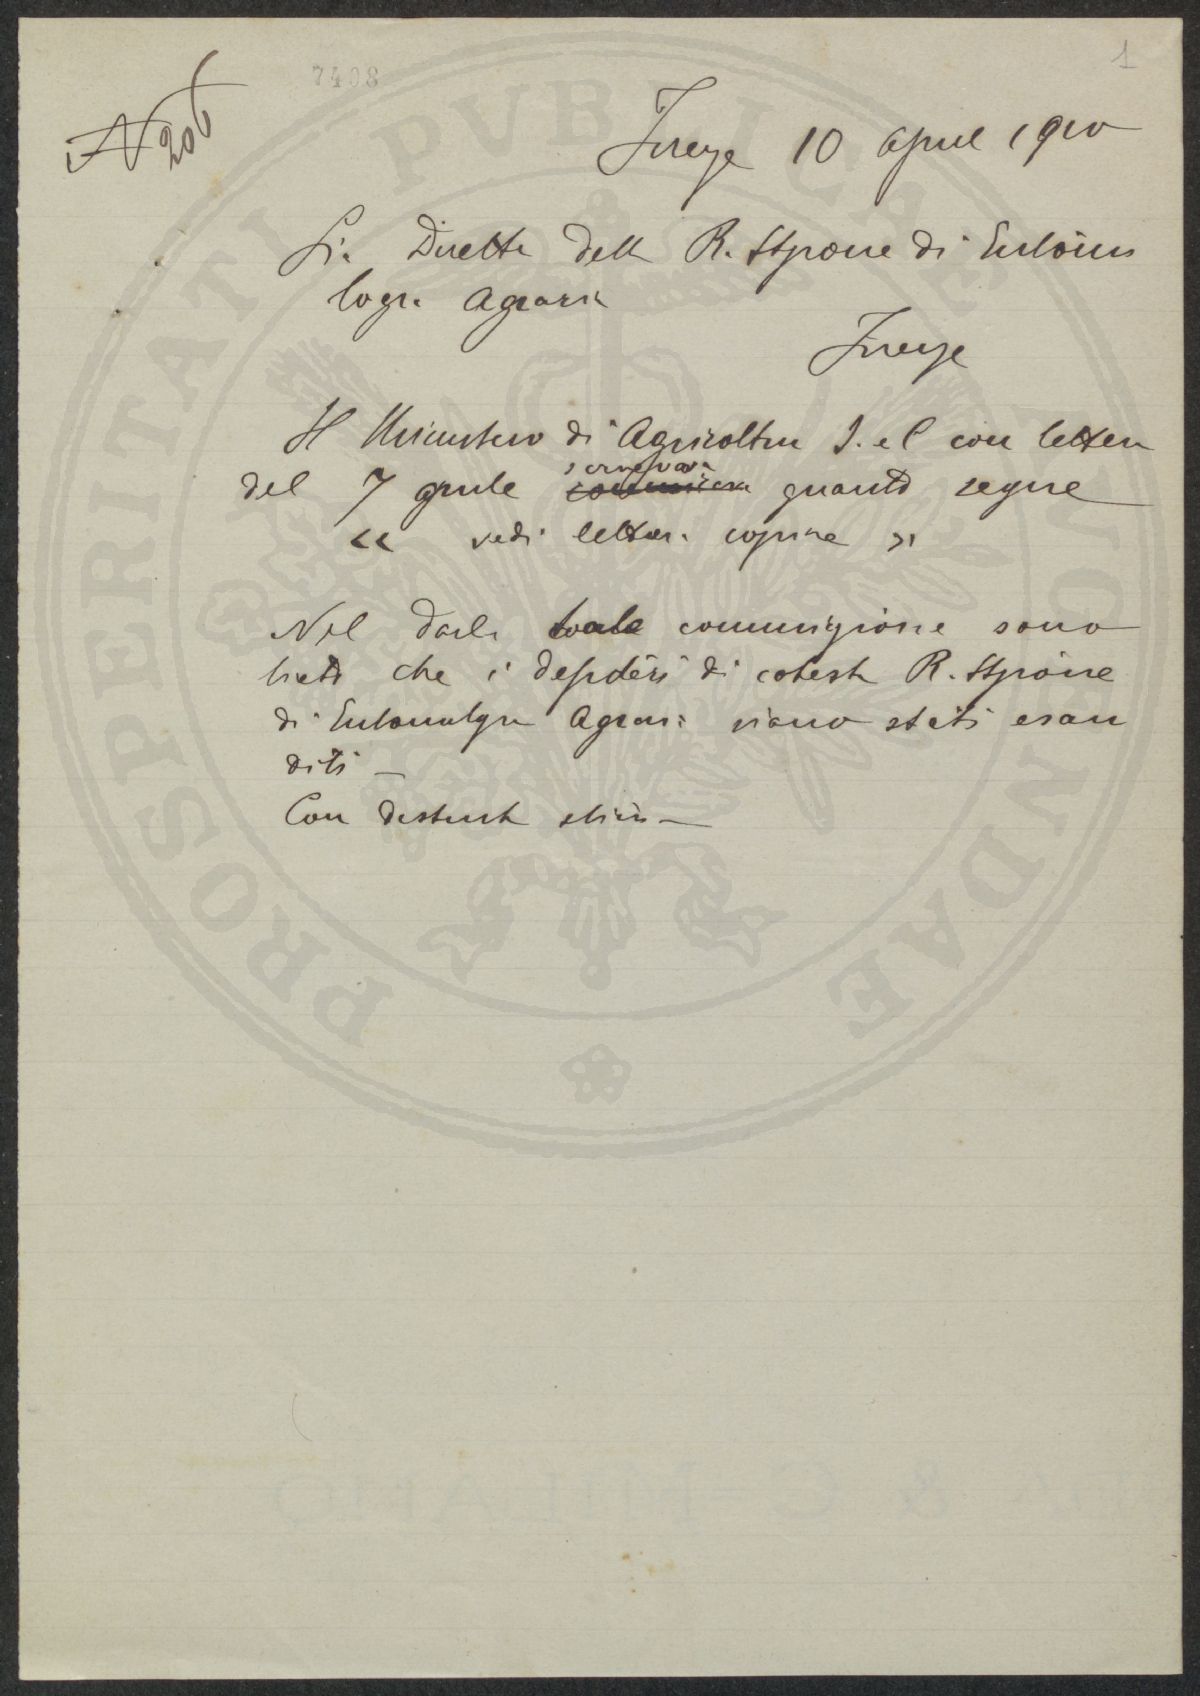 1
7408
N 206
Firenze 10 Aprile 1910
Sig. Direttore della R. Stazione di Entomo
logia Agraria
Firenze
Il Ministero di Agricoltura I. e C con lettera
del 7 aprile quanto segue
<< vedi lettera copiare >>
Nel darle tale comunicazione sono
lieto che i desideri di cotesta R. Stazione
di Entomologia Agraria siano stati esau
diti
Con distinta stima
PROSPERITATI PVBLICAE AVGENDAE
& C = MILANO